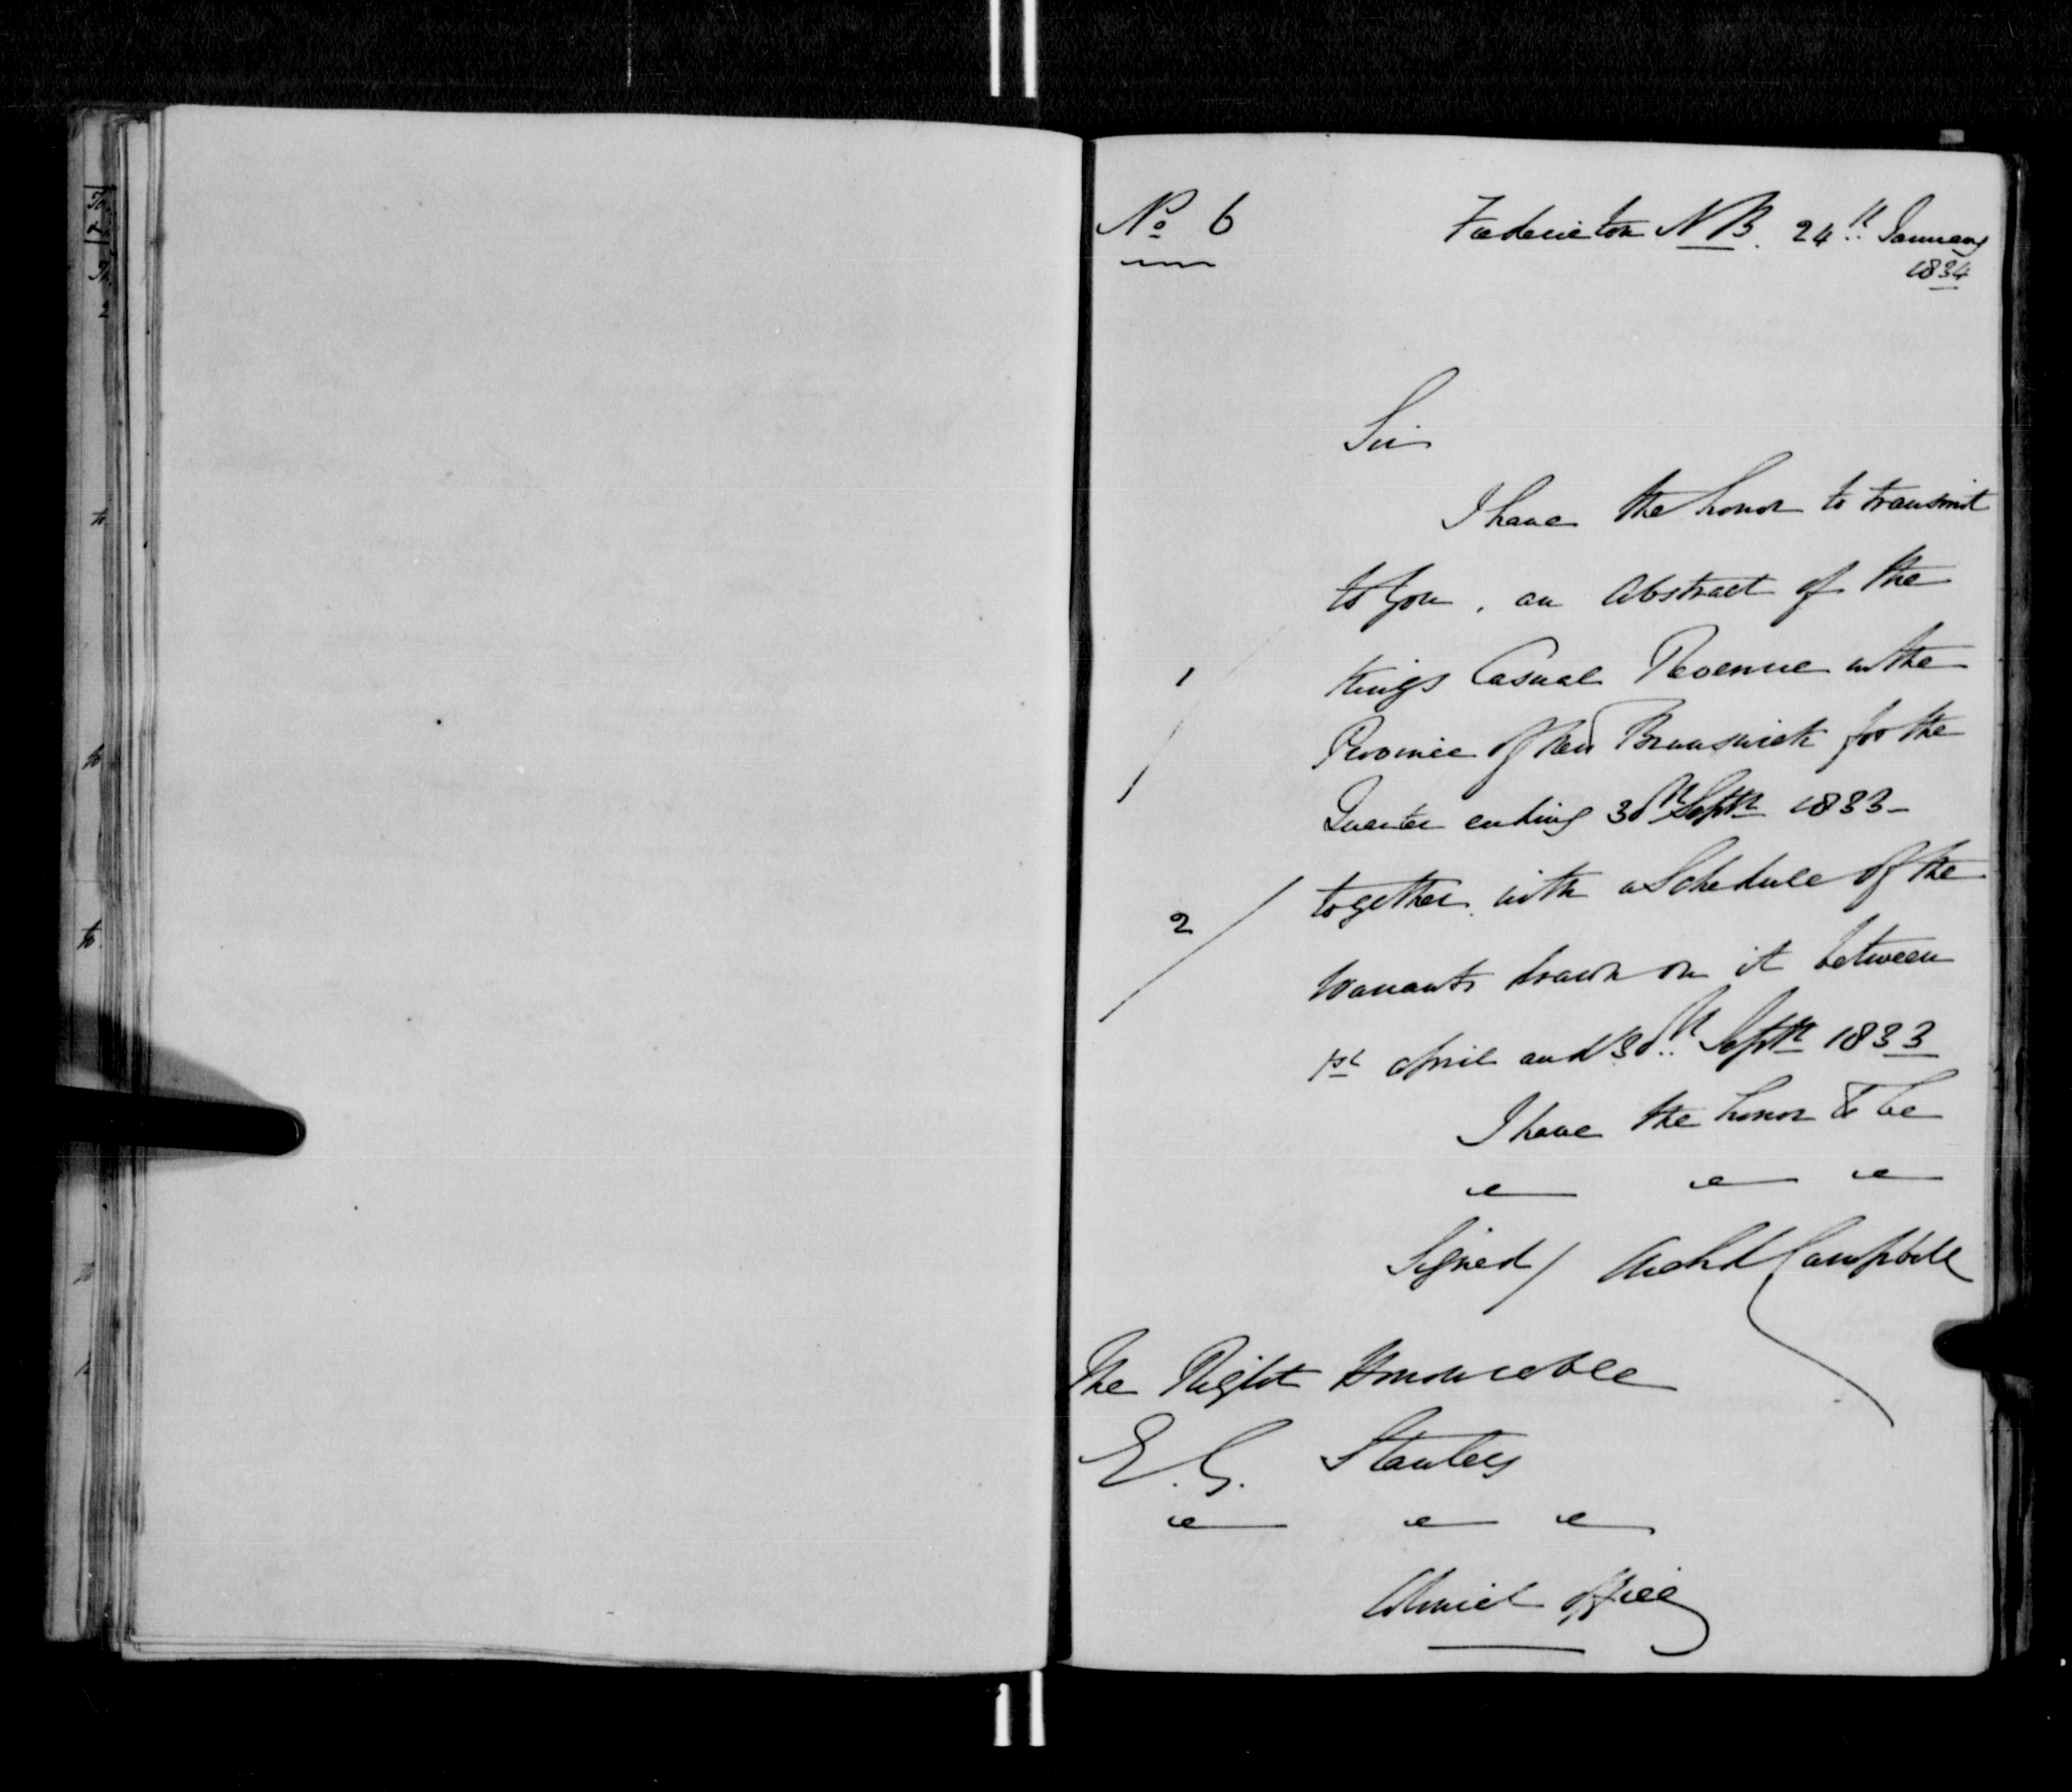 No 6
Fredericton N B. 24th January
1834
Sir
I have the honor to transmit
to you, an Abstract of the
1
Kings Casual Revenue in the
Province of New Brunswick for the
Quarter ending 30th Septr 1833 –
2
together with a Schedule of the
Warrants drawn on it between
1st April and 30th Septr 1833
I have the honor to be
Signed / Archd Campbell
The Right Honourable
E. G. Stanley
Colonial Office